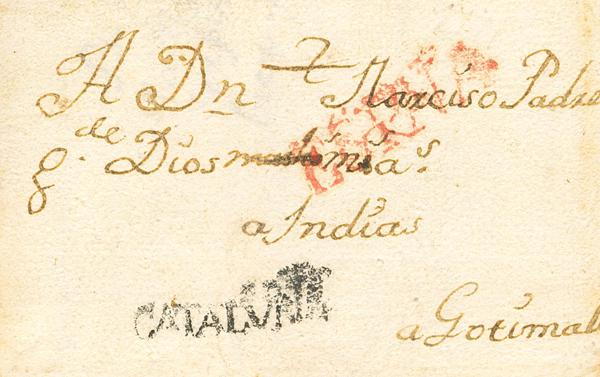 A Dn Narciso Padre
g. de Dios ms as.
a Indias
CATALUÑA
a Gotimal